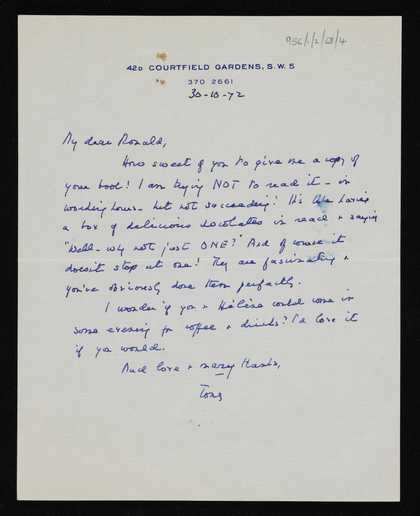 956/1/2/28/4
42D COURTFIELD GARDENS, S.W. 5
370 2661
30-10-72
My dear Ronald,
How sweet of you to give me a copy of
your book! I am trying NOT to read it - in
working hours - but not succeeding! It's like having
a box of delicious chocolates in reach & saying
"Well - why not just ONE?" And of course it
doesn't stop at one! They are fascinating &
you've obviously done them perfectly.
I wonder if you & Hélène could come in
some evening for coffee & drinks? I'd love it
if you would.
Much love & many thanks,
Tony